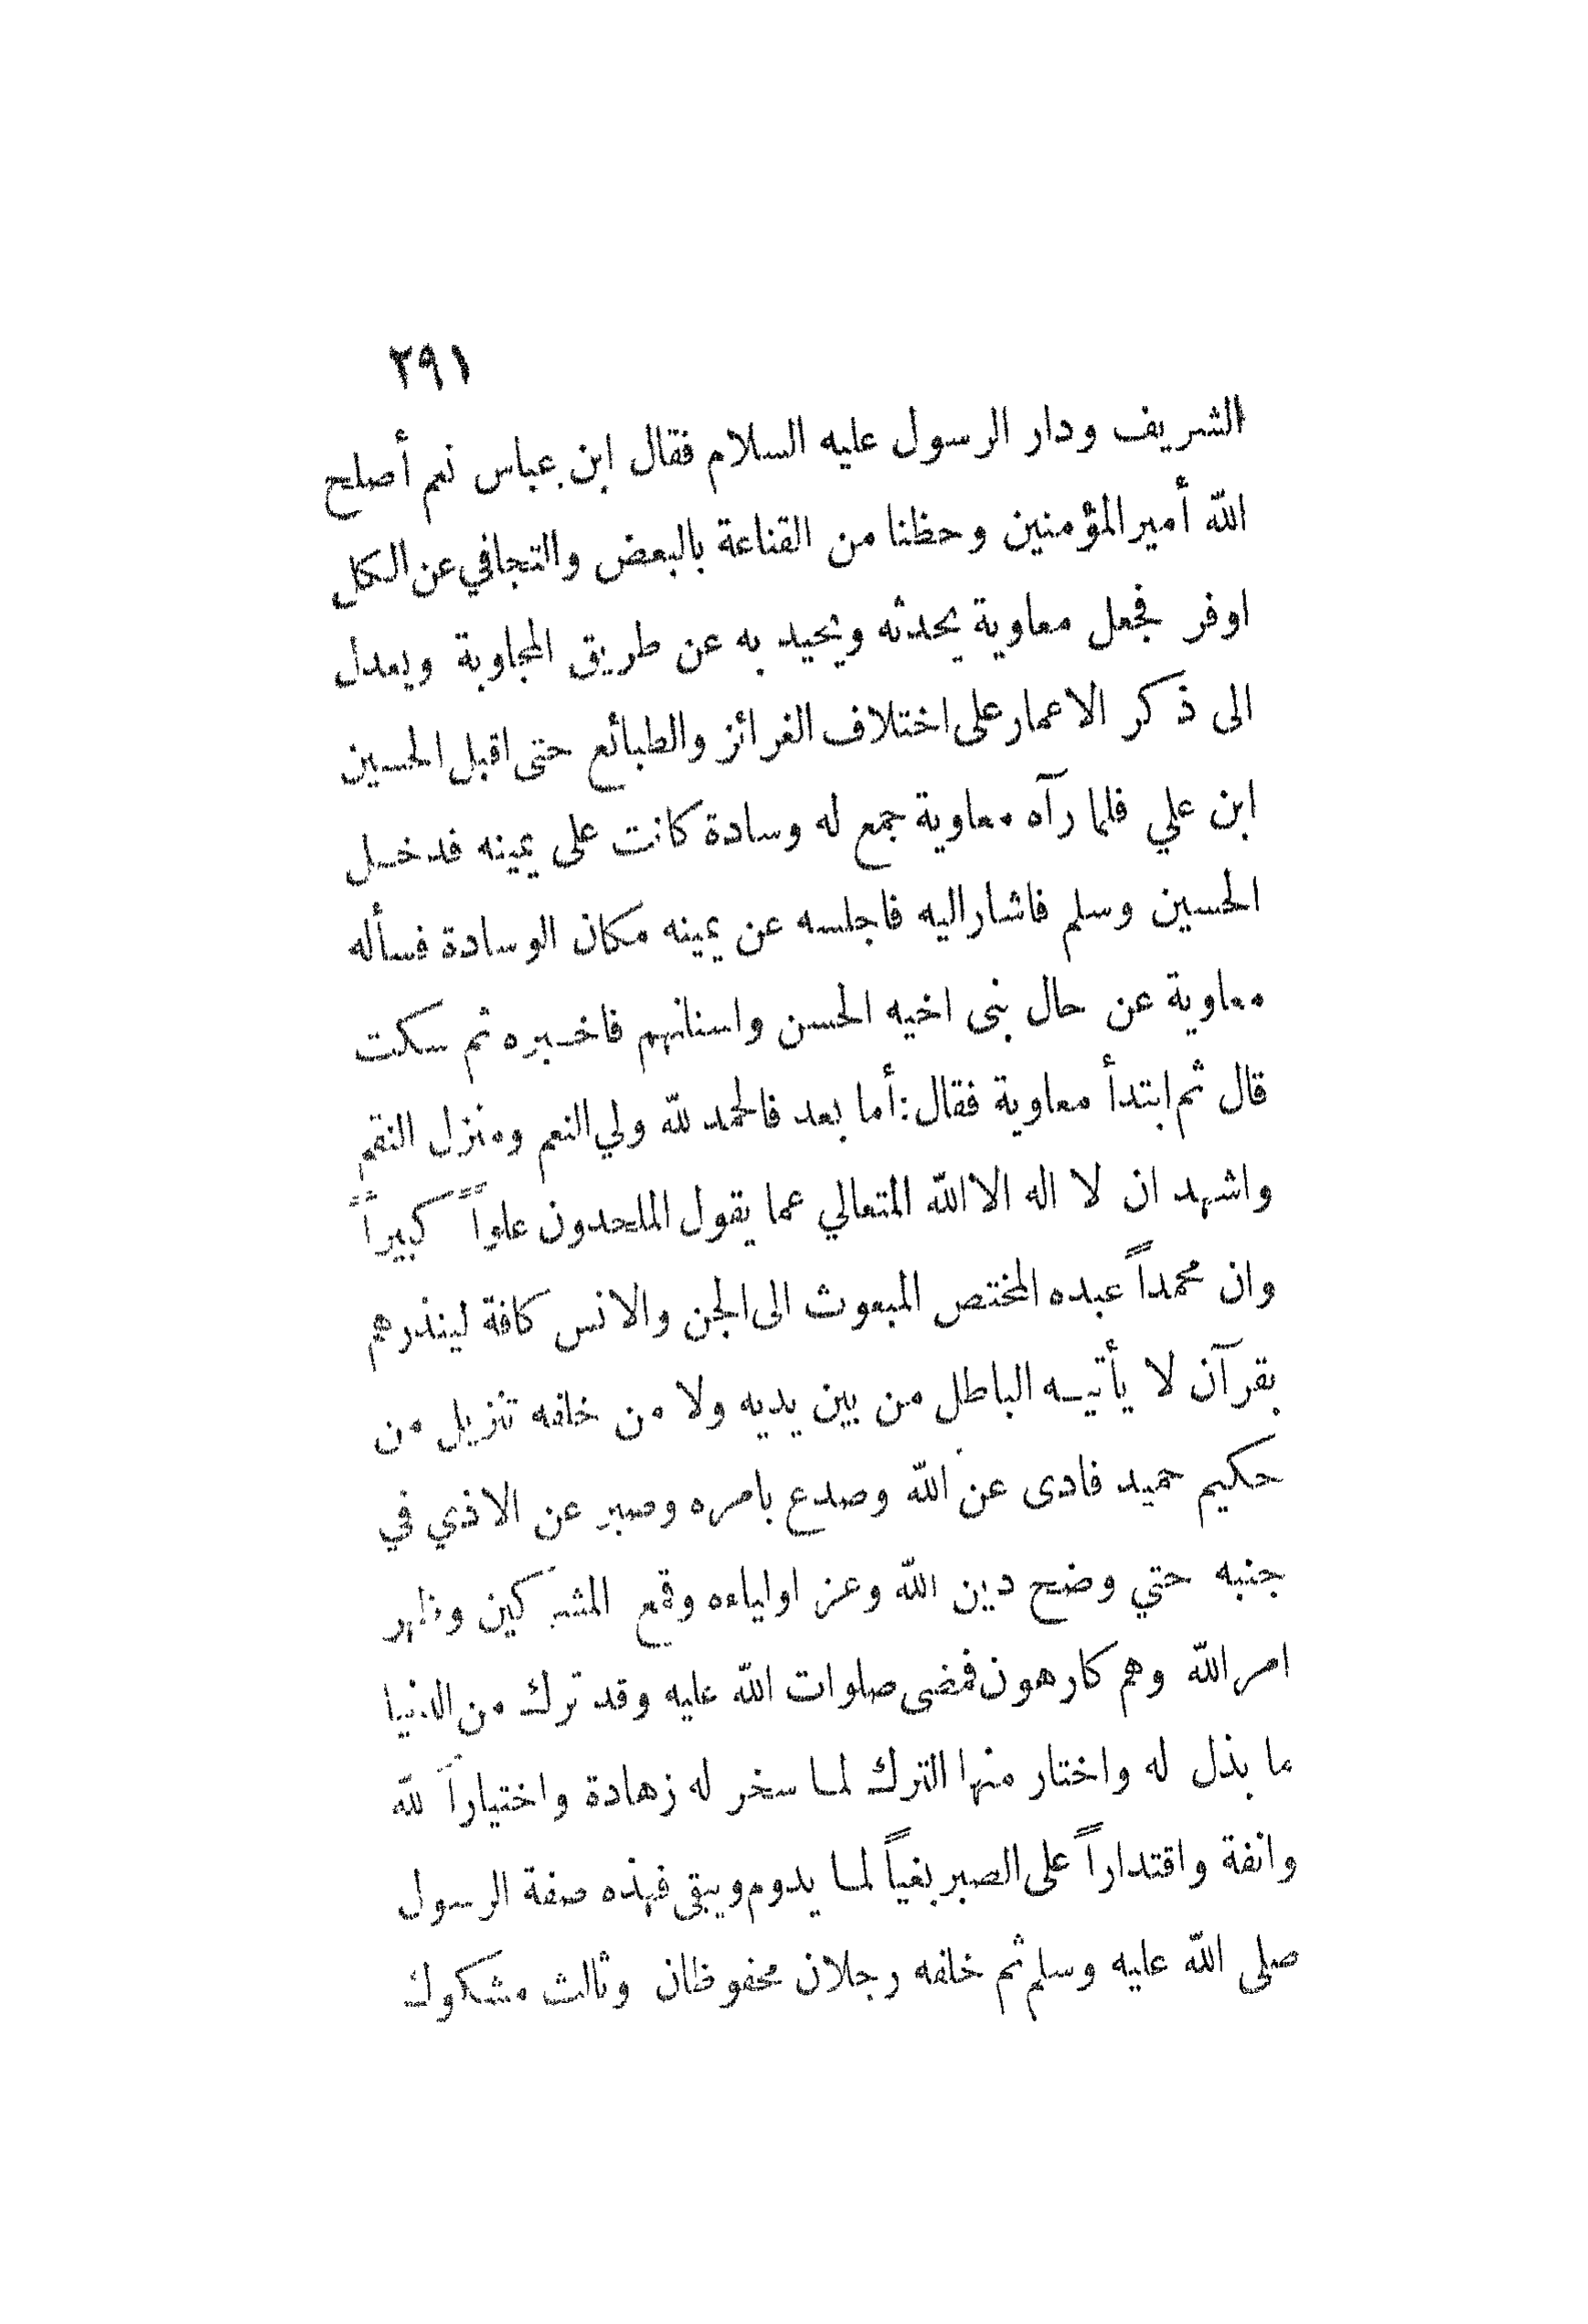 ٢٩١
الشريف ودار الرسول عليه السلام فقال ابن عباس نعم أصلح
الله أمير المؤمنين وحظنا من القناعة بالبعض والتجافي عن الكل
اوفر فجعل معاوية يحدثه ويحيد به عن طريق المجاوبة ويعدل
الى ذكر الاعمار على اختلاف الغرائز والطبائع حتى اقبل الحسين
ابن علي فلما رآه معاوية جمع له وسادة كانت على يمينه فدخل
الحسين وسلم فاشار اليه فاجلسه عن يمينه مكان الوسادة فسأله
معاوية عن حال بنى اخيه الحسن واسنانهم فاخبره ثم سكت
قال ثم ابتدأ معاوية فقال: أما بعد فالحمد لله ولي النعم ومنزل النقم
واشهد ان لا اله الا الله المتعالي عما يقول الملحدون علواً كبيراً
وان محمداً عبده المختص المبعوث الى الجن والانس كافة لينذرهم
بقرآن لا يأتيه الباطل من بين يديه ولا من خلفه تنزيل من
حكيم حميد فادى عن الله وصدع بامره وصبر عن الاذي في
جنبه حتي وضح دين الله وعز اولياءه وقمع المشركين وظهر
امر الله وهم كارهون فمضى صلوات الله عليه وقد ترك من الدنيا
ما بذل له واختار منها الترك لما سخر له زهادة واختياراً لله
وانفة واقتداراً على الصبر بغياً لما يدوم ويبقى فهذه صفة الرسول
صلى الله عليه وسلم ثم خلفه رجلان محفوظان وثالث مشكوك